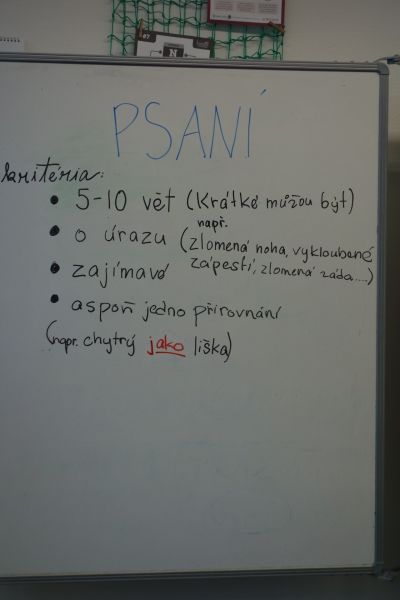 PSANÍ
kritéria:
• 5-10 vět (krátké můžou být)
• o úrazu (např. zlomená noha, vykloubené
zápěstí, zlomená záda....)
• zajímavé
• aspoň jedno přirovnání
(např. chytrý jako liška)